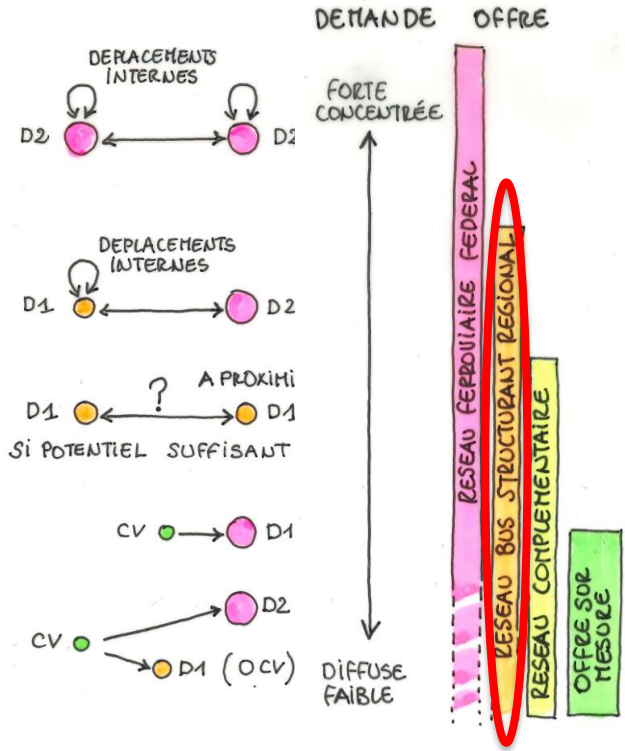 DEMANDE OFFRE
DEPLACEMENTS
INTERNES
D2
D2
FORTE
CONCENTRÉE
DEPLACEMENTS
INTERNES
D1
D2
?
A PROXIMI
D1
D1
SI POTENTIEL SUFFISANT
CV
D1
D2
CV
D1 (OCV)
DIFFUSE
FAIBLE
RESEAU FERROVIAIRE FEDERAL
RESEAU BUS STRUCTURANT REGIONAL
RESEAU COMPLEMENTAIRE
OFFRE SUR
MESURE